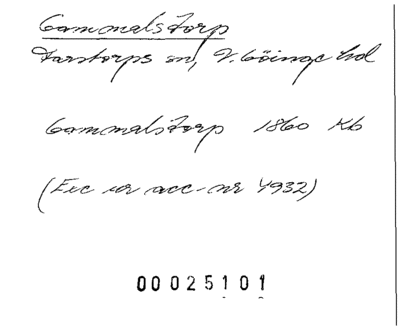 Gammalstorp
Farstorps sn, V. Göinge hd
Gammalstorp 1860 Kb
(Exc ur acc-nr 4932)
00025101